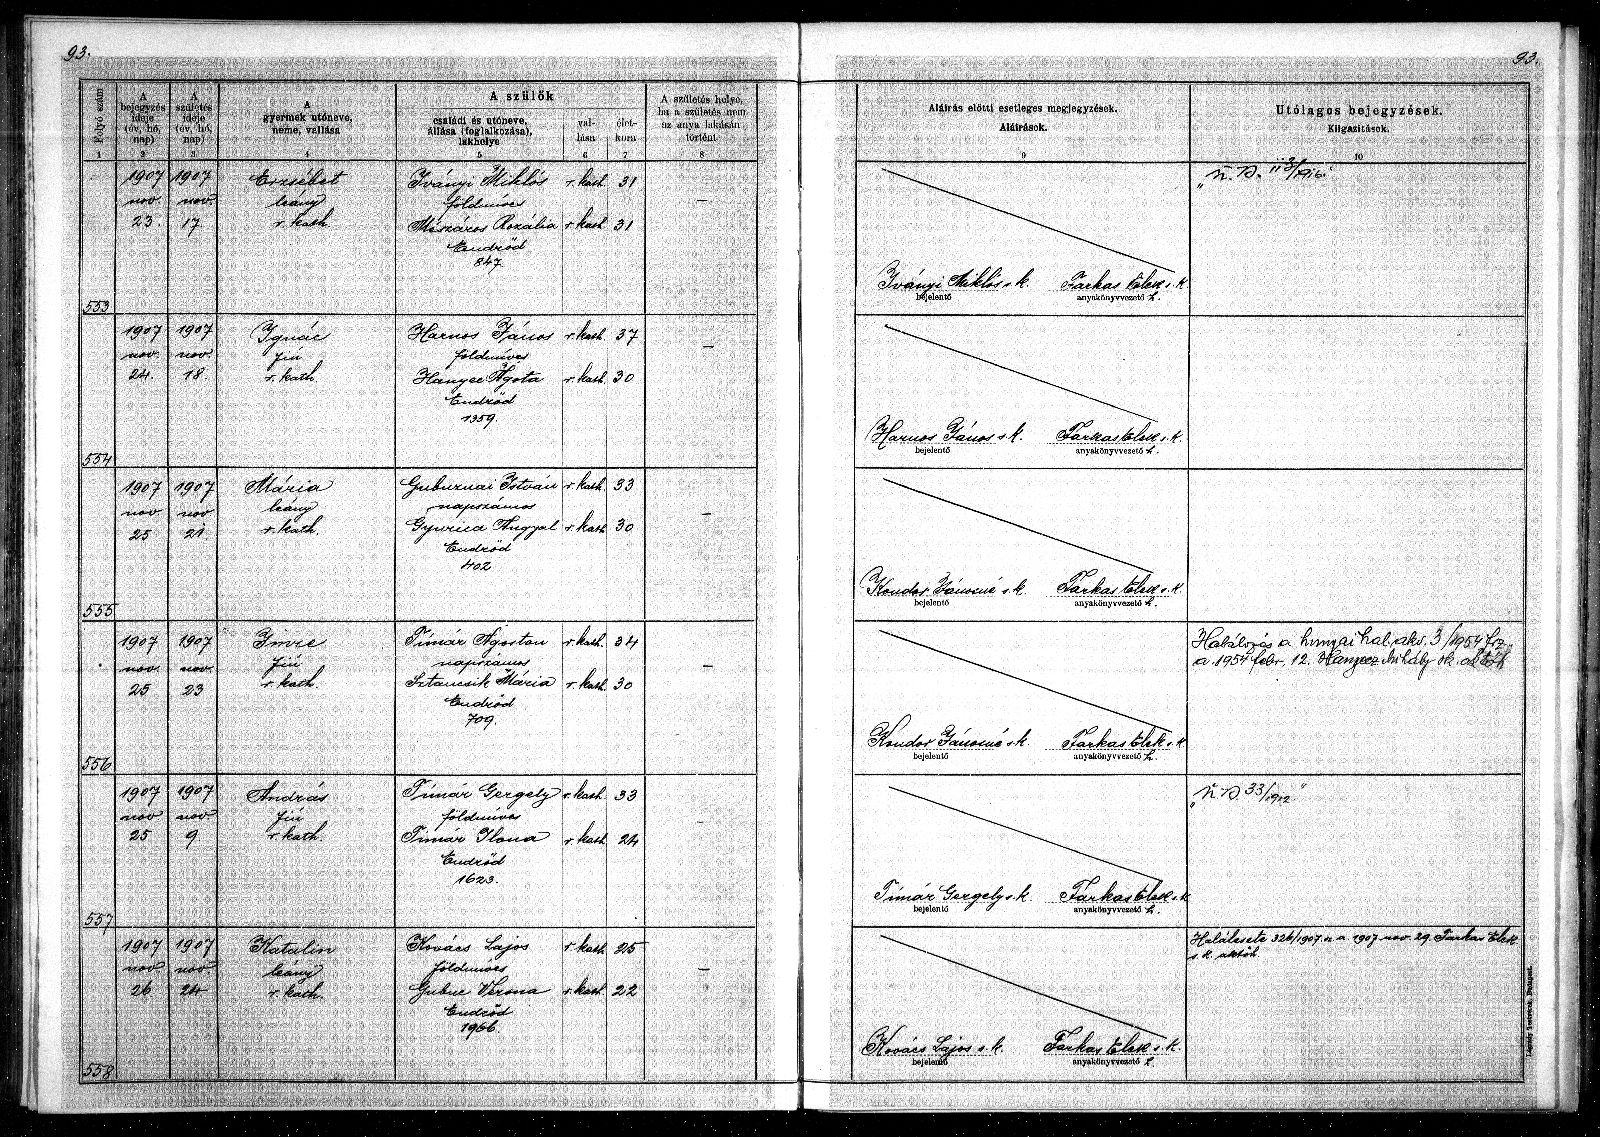 93.
93.
Folyó szám
A bejegyzés ideje (év, hó, nap)
A születés ideje (év, hó, nap)
A gyermek utóneve, neme, vallása
A szülők
családi és utóneve, állása (foglalkozása), lakhelye
val-lása
élet-kora
A születés helye, ha a születés nem az anya lakásán történt
Aláírás előtti esetleges megjegyzések.
Aláírások.
Utólagos bejegyzések.
Kiigazítások.
1 2 3 4 5 6 7 8 9 10
1907 1907 Erzsébet Iványi Miklós r. kath. 31
nov. nov. leány földmíves —
23. 17. r. kath. Mészáros Rozália r. kath. 31
Endrőd
847.
Iványi Miklós s. k. Farkas Elek s. k.
bejelentő anyakönyvvezető h.
553
1907 1907 Ignác Harnos János r. kath. 37
nov. nov. fiú földmíves —
24. 18. r. kath. Hanyec Ágota r. kath. 30
Endrőd
1359.
Harnos János s. k. Farkas Elek s. k.
bejelentő anyakönyvvezető h.
554
1907 1907 Mária Guburnai István r. kath. 33
nov nov leány napszámos —
25 21 r. kath. Gyurica Angyal r. kath. 30
Endrőd
402
Kondor Jánosné s. k. Farkas Elek s. k.
bejelentő anyakönyvvezető h.
555
1907 1907 Imre Tímár Ágoston r. kath. 34
nov. nov. fiú napszámos —
25 23 r. kath. Sztancsik Mária r. kath. 30
Endrőd
709.
Halálozás a hunyai hal. akv. 3/1954 fsz.
a 1954 febr. 12. Hanyecz Mihály sk.
Kondor Jánosné s. k. Farkas Elek s. k.
bejelentő anyakönyvvezető h.
556
1907 1907 András Tímár Gergely r. kath. 33
nov nov fiú földmíves —
25 9. r. kath. Tímár Ilona r. kath. 24
Endrőd
1623.
33/1912
Tímár Gergely s. k. Farkas Elek s. k.
bejelentő anyakönyvvezető h.
557
1907 1907 Katalin Kovács Lajos r. kath. 25
nov nov leány földmíves —
26 24 r. kath. Gubuc Verona r. kath. 22
Endrőd
1966.
Halálesete 326/1907. a. a 1907 nov. 29. Farkas Elek
s. k. aktóh.
Kovács Lajos s. k. Farkas Elek s. k.
bejelentő anyakönyvvezető h.
558